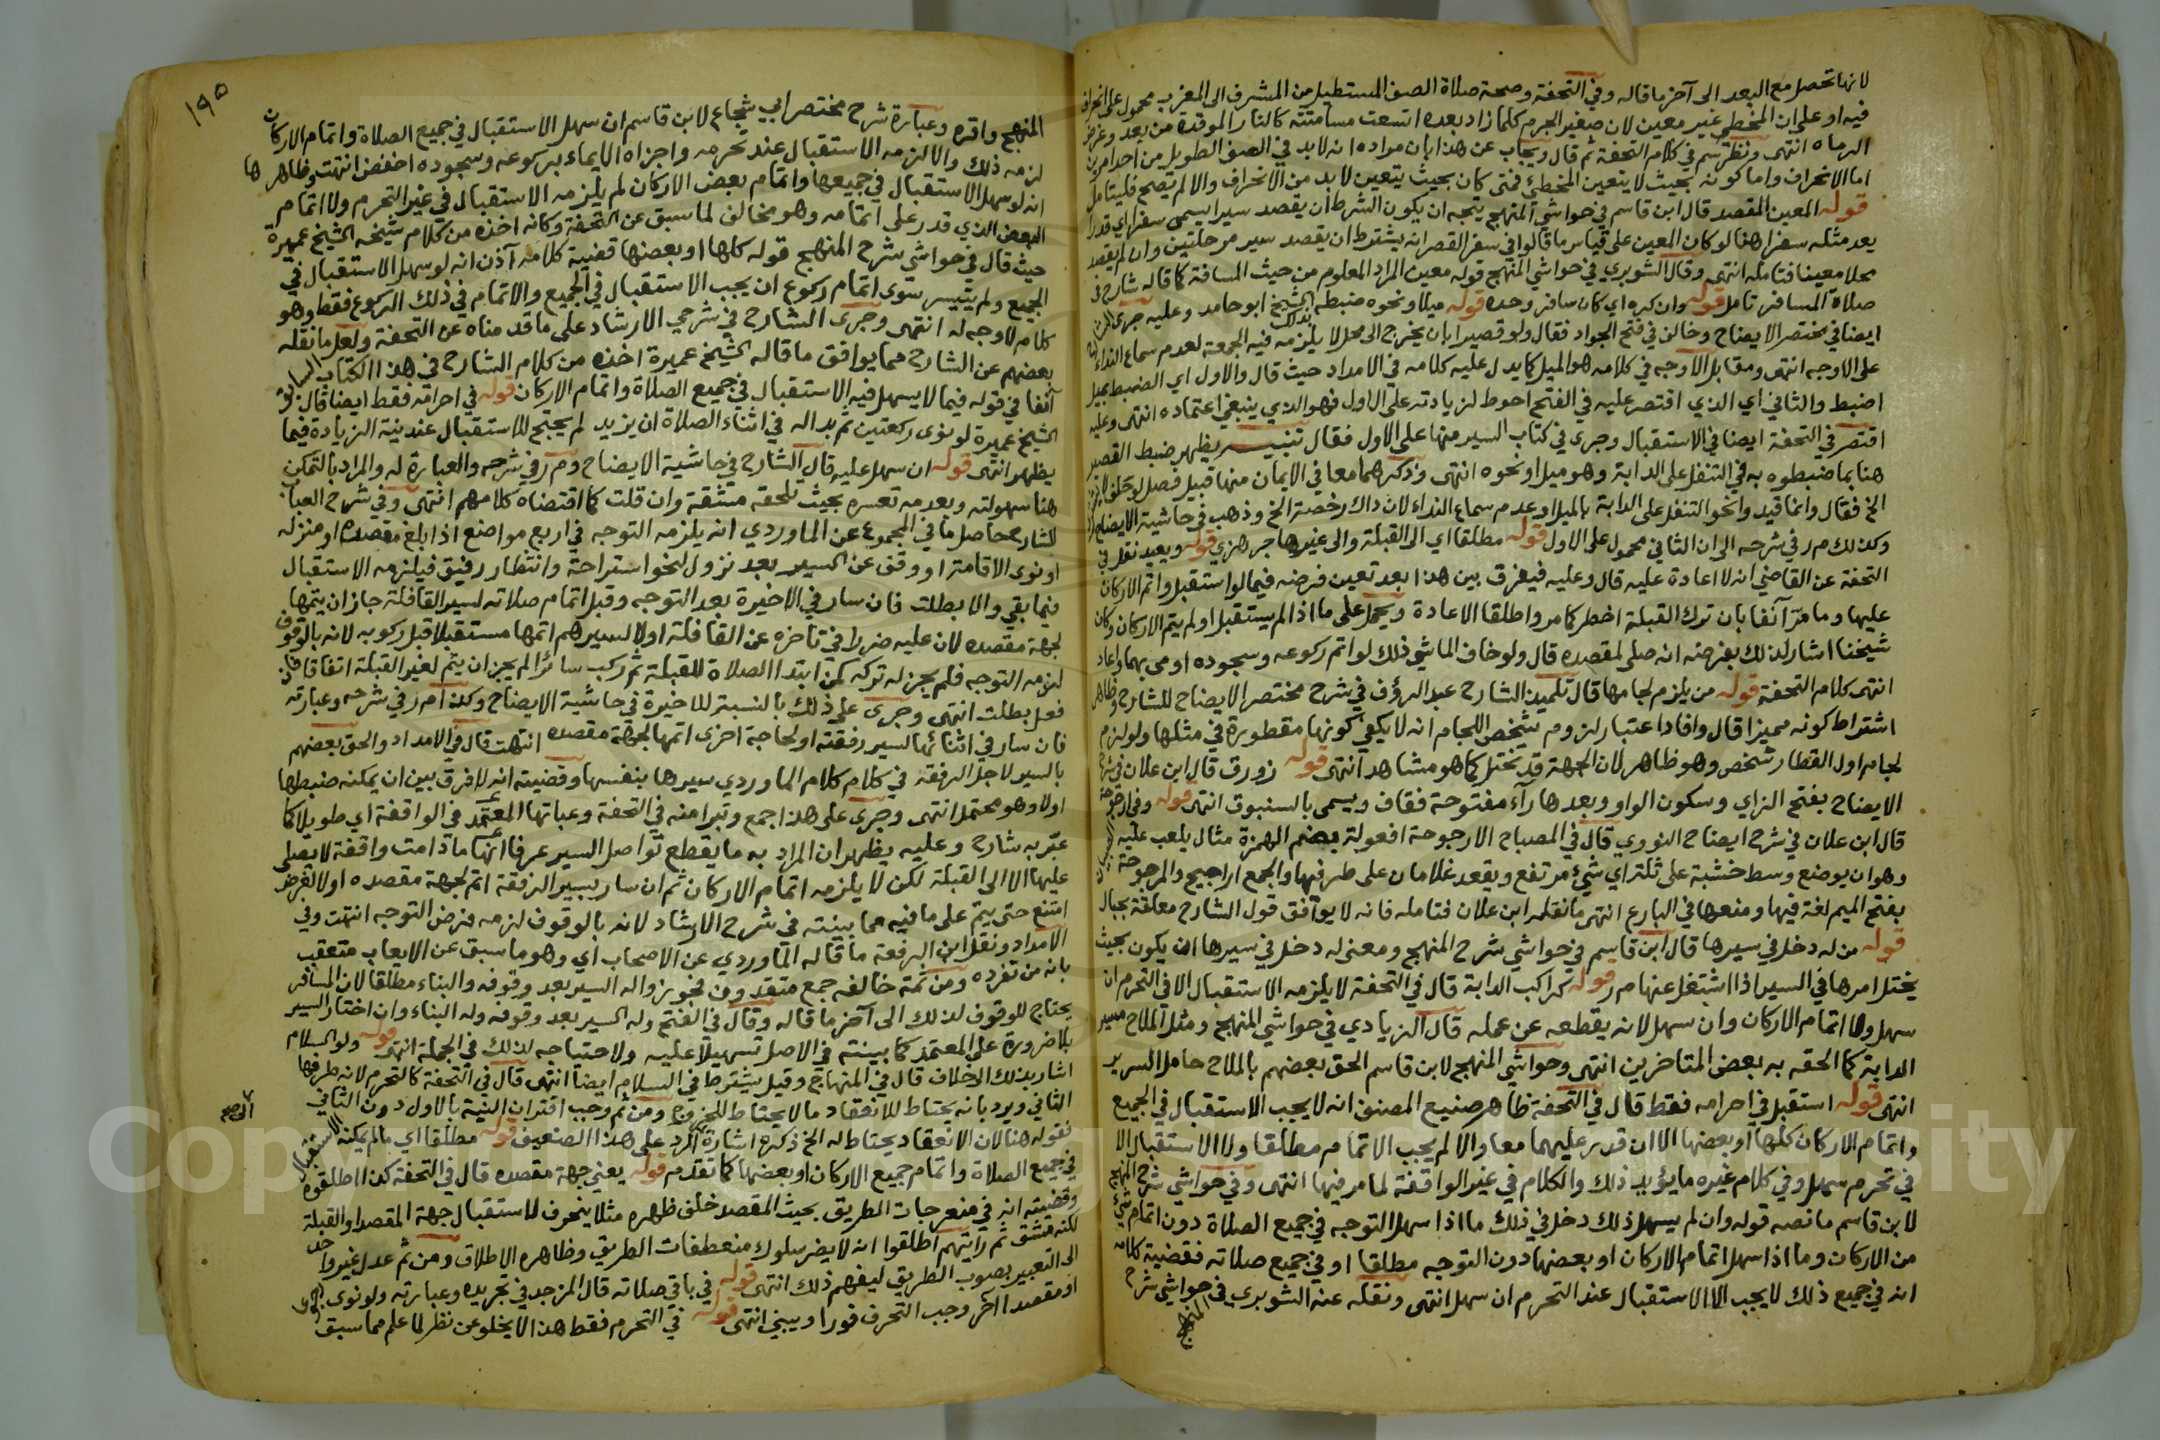 لانها تحصل مع البعد الى آخر ما قاله وفي التحفة وصحة صلاة الصف المستطيل من المشرق الى المغرب محمول على انحراف
فيه او على ان المخطي غير معين لان صغير الجرم كلما زاد بعده اتسعت مسامتته كالنار الموقدة من بعد وغرض
الرماه انتهى ونظر سم في كلام التحفة ثم قال ويجاب عن هذا بان مراده انه لا بد في الصف الطويل من احد امرين
اما الانحراف واما كونه بحيث لا يتعين المخطئ فمتى كان بحيث يتعين لا بد من الانحراف والا لم تصح فليتامل
قوله المعين المقصد قال ابن قاسم في حواشي المنهج يتجه ان يكون الشرط ان يقصد سيرا يسمى سفرا اي قدرا
يعد مثله سفرا هنا لو كان المعين على قياس ما قالوا في سفر القصر انه يشترط ان يقصد سير مرحلتين وان لم يقصد
محلا معينا فتامله انتهى وقال الشوبري في حواشي المنهج قوله معين المراد المعلوم من حيث المسافة كما قاله شارح في
صلاة المسافر تامل قوله وان كره اي كان سافر وحده قوله ميلا ونحوه ضبطه بذلك الشيخ ابو حامد وعليه جرى الشارح
ايضا في مختصر الايضاح وخالف في فتح الجواد فقال ولو قصيرا بان يخرج الى محل لا يلزمه فيه الجمعة لعدم سماع النداء
على الاوجه انتهى ومقابل الاوجه في كلامه هو الميل كما يدل عليه كلامه في الامداد حيث قال والاول اي الضبط بميل
اضبط والثاني اي الذي اقتصر عليه في الفتح احوط لزيادته على الاول فهو الذي ينبغي اعتماده انتهى وعليه
اقتصر في التحفة ايضا في الاستقبال وجرى في كتاب السير منها على الاول فقال تنبيه يظهر ضبط القصير
هنا بما ضبطوه به في التنفل على الدابة وهو ميل او نحوه انتهى وذكرهما معا في الايمان منها قبيل فصل لو حلف
الخ فقال وانما قيد وانحو التنفل على الدابة بالميل او عدم سماع النداء لان ذاك رخصة الخ وذهب في حاشية الايضاح
وكذلك م ر في شرحه الى ان الثاني محمول على الاول قوله مطلقا اي الى القبلة والى غيرها جرهزي قوله ويعيد نقل في
التحفة عن القاضي انه لا اعادة عليه قال وعليه فيفرق بين هذا بعد تعين فرضه فيما لو استقبل واتم الاركان
عليها وما مر آنفا بان ترك القبلة اخطر كما مر واطلقا الاعادة ويحمل على ما اذا لم يستقبل او لم يتم الاركان وكان
شيخنا اشار لذلك بفرضه انه صلى لمقصده قال ولو خاف الماشي ذلك لو اتم ركوعه وسجوده اومى بهما واعاد
انتهى كلام التحفة قوله من يلزم لجامها قال تلميذ الشارح عبد الرؤف في شرح مختصر الايضاح للشارح وظاهر
اشتراط كونه مميزا قال وافاد اعتبار لزوم شخص اللجام انه لا يكفي كونها مقطورة في مثلها ولو لزم
لجام اول القطار شخص وهو ظاهر لان الجهة قد تختل كما هو مشاهد انتهى قوله زورق قال ابن علان في شرح
الايضاح بفتح الزاي وسكون الواو وبعدها رآء مفتوحة فقاف ويسمى بالسنبوق انتهى قوله وفي ارجوحة
قال ابن علان في شرح ايضاح النووي قال في المصباح الارجوحة افعولة بضم الهمزة مثال يلعب عليه الصبيان
وهو ان يوضع وسط خشبة على تلة اي شيء مرتفع ويقعد غلامان على طرفيها والجمع اراجيح والمرجوحة
بفتح الميم لغة فيها ومنعها في البارع انتهى ما نقله ابن علان فتامله فانه لا يوافق قول الشارح معلقة بحبال
قوله من له دخل في سيرها قال ابن قاسم في حواشي شرح المنهج ومعنى له دخل في سيرها انه يكون بحيث
يختل امرها في السير اذا اشتغل عنها م ر قوله كراكب الدابة قال في التحفة لا يلزمه الاستقبال الا في التحرم ان
سهل ولا اتمام الاركان وان سهل لانه يقطعه عن عمله قال الزيادي في حواشي المنهج ومثل الملاح مسير
الدابة كما الحقه به بعض المتاخرين انتهى وحواشي المنهج لابن قاسم الحق بعضهم بالملاح حامل السرير
انتهى قوله استقبل في احرامه فقط قال في التحفة ظاهر صنيع المصنف انه لا يجب الاستقبال في الجميع
واتمام الاركان كلها او بعضها الا ان قدر عليهما معا والا لم يجب الاتمام مطلقا ولا الاستقبال الا
في تحرم سهل وفي كلام غيره ما يؤيد ذلك والكلام في غير الواقفة لما مر فيها انتهى وفي حواشي شرح المنهج
لابن قاسم ما نصه قوله وان لم يسهل ذلك دخل في ذلك ما اذا سهل التوجه في جميع الصلاة دون اتمام شيء
من الاركان وما اذا سهل اتمام الاركان او بعضها دون التوجه مطلقا او في جميع صلاته فقضية كلامه
انه في جميع ذلك لا يجب الا الاستقبال عند التحرم ان سهل انتهى ونقله عنه الشوبري في حواشي شرح
المنهج
١٩٥
المنهج واقره وعبارة شرح مختصر ابي شجاع لابن قاسم ان سهل الاستقبال في جميع الصلاة واتمام الاركان
لزمه ذلك والا لزمه الاستقبال عند تحرمه واجزاه الايماء بركوعه وسجوده اخفض انتهت وظاهرها
انه لو سهل الاستقبال في جميعها واتمام بعض الاركان لم يلزمه الاستقبال في غير التحرم ولا اتمام
البعض الذي قدر على اتمامه وهو مخالف لما سبق عن التحفة وكانه اخذه من كلام شيخه الشيخ عميرة
حيث قال في حواشي شرح المنهج قوله كلها او بعضها قضية كلامه آذن انه لو سهل الاستقبال في
الجميع ولم يتيسر سوى اتمام ركوع ان يجب الاستقبال في الجميع والاتمام في ذلك الركوع فقط وهو
كلام لا وجه له انتهى وجرى الشارح في شرحي الارشاد على ما قدمناه عن التحفة ولعل ما نقله
بعضهم عن الشارح مما يوافق ما قاله الشيخ عميرة اخذه من كلام الشارح في هذا الكتاب السابق
آنفا في قوله فيما لا يسهل فيه الاستقبال في جميع الصلاة واتمام الاركان قوله في احرامه فقط ايضا قال
الشيخ عميرة لو نوى ركعتين ثم بدا له في اثناء الصلاة ان يزيد لم يحتج للاستقبال عند نية الزيادة فيما
يظهر انتهى قوله ان سهل عليه قال الشارح في حاشية الايضاح وم ر في شرحه والعبارة له والمراد بالتمكن
هنا سهولته وبعدمه تعسره بحيث تلحقه مشقة وان قلت كما اقتضاه كلامهم انتهى وفي شرح العباب
للشارح حاصل ما في المجموع عن الماوردي انه يلزمه التوجه في اربع مواضع اذا بلغ مقصده او منزله
او نوى الاقامة او وقف عن السير بعد نزول لنحو استراحة وانتظار رفيق فيلزمه الاستقبال
فيما بقي والا بطلت فان سار في الاخيرة بعد التوجه وقبل اتمام صلاته لسير القافلة جاز ان يتمها
لجهة مقصده لان عليه ضررا في تاخره عن القافلة او لا لسيرهم اتمها مستقبلا قبل ركوبه لانه بالوقوف
لزمه التوجه فلم يجز له تركه كمن ابتدا الصلاة للقبلة ثم ركب سائرا لم يجز ان يتم لغير القبلة اتفاقا فان
فعل بطلت انتهى وجرى على ذلك بالنسبة للاخيرة في حاشية الايضاح وكذا م ر في شرحه وعبارته
فان سار في اثنائها لسير رفقته او لحاجة اخرى اتمها لجهة مقصده انتهت قال في الامداد والحق بعضهم
بالسير لاجل الرفقة في كلام كلام الماوردي سيرها بنفسها وقضيته انه لا فرق بين ان يمكنه ضبطها
اولا وهو محتمل انتهى وجرى على هذا جمع وتبرا منه في التحفة وعباتها المعتمد في الواقفة اي طويلا كما
عبر به شارح وعليه يظهر ان المراد به ما يقطع تواصل السير عرفا انها ما دامت واقفة لا يصلى
عليها الا الى القبلة لكن لا يلزمه اتمام الاركان ثم ان سار بسير الرفقة اتم لجهة مقصده او لا لغرض
امتنع حتى يتم على ما فيه مما بينته في شرح الارشاد لانه بالوقوف لزمه فرض التوجه انتهت وفي
الامداد ونقل ابن الرفعة ما قاله الماوردي عن الاصحاب اي وهو ما سبق عن الايعاب متعقب
بانه من تفرده ومن ثمة خالفه جمع متقدمون فجوزوا له السير بعد وقوفه والبناء مطلقا لان المسافر
يحتاج للوقوف لذلك الى آخر ما قاله وقال في الفتح وله السير بعد وقوفه وله البناء وان اختار السير
بلا ضرورة على المعتمد كما بينته في الاصل تسهيلا عليه ولاحتياجه لذلك في الجملة انتهى قوله ولو السلام
اشار بذلك لاخلاف قال في المنهاج وقيل يشترط في السلام ايضا انتهى قال في التحفة كالتحرم لانه طرفها
الثاني ويرد بانه يحتاط للانعقاد ما لا يحتاط للخروج ومن ثم وجب اقتران النية بالاول دون الثاني
فقوله هنا لان الانعقاد يحتاط له الخ ذكره اشارة للرد على هذا الضعيف قوله مطلقا اي ما لم يمكنه الاستقبال
في جميع الصلاة واتمام جميع الاركان او بعضها كما تقدم قوله يعني جهة مقصده قال في التحفة كذا اطلقوه
وقضيته انه في منعرجات الطريق بحيث المقصد خلف ظهره مثلا ينحرف لاستقبال جهة المقصد او القبلة
لكنه مشق ثم رايتهم اطلقوا انه لا يضر سلوك منعطفات الطريق وظاهره الاطلاق ومن ثم عدل غير واحد
الى التعبير بصوب الطريق ليفهم ذلك انتهى قوله في باقي صلاته قال المزجد في تجريده وعبارته ولو نوى
او مقصدا آخر وجب التحرف فورا ويبني انتهى قوله في التحرم فقط هذا لا يخلو عن نظر لما علم مما سبق